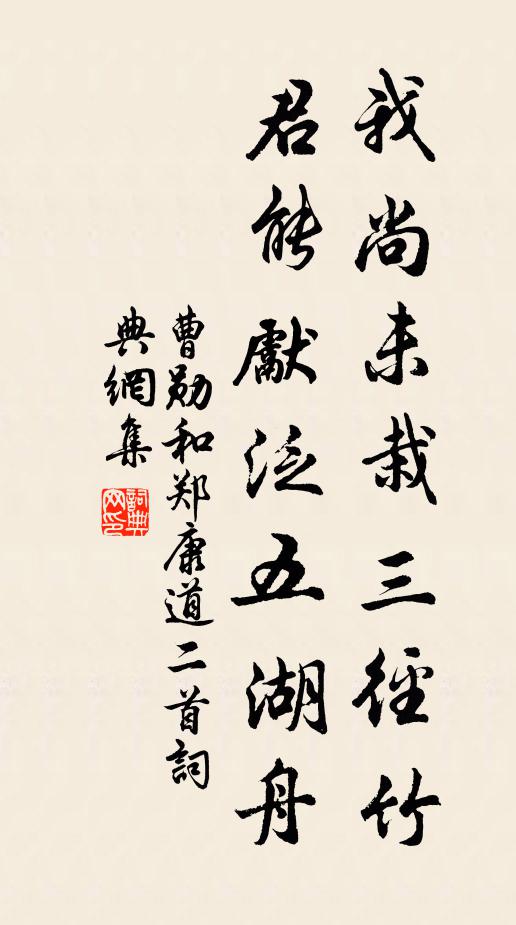 我尚未栽三径竹
君能献泛五湖舟
曹勋和郑康道二首词
典網集
詞典网印